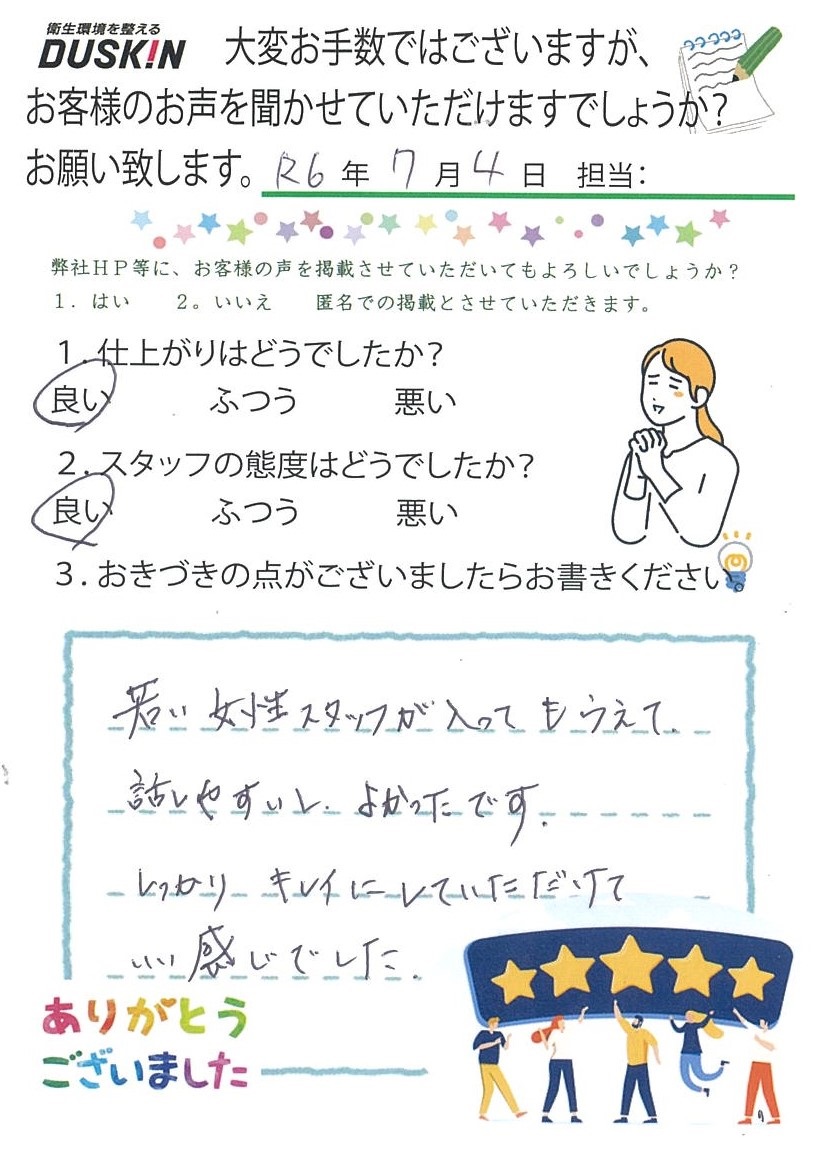 衛生環境を整える
DUSKIN
大変お手数ではございますが、
お客様のお声を聞かせていただけますでしょうか?
お願い致します。 R6 年 7 月 4 日 担当:
弊社HP等に、お客様の声を掲載させていただいてもよろしいでしょうか?
1. はい 2。いいえ 匿名での掲載とさせていただきます。
1.仕上がりはどうでしたか?
良い ふつう 悪い
2.スタッフの態度はどうでしたか?
良い ふつう 悪い
3.おきづきの点がございましたらお書きください。
若い 女性スタッフが 入って もらえて、
話しやすいし、よかったです。
しっかり キレイにしていただけて
いい感じでした。
ありがとう
ございました